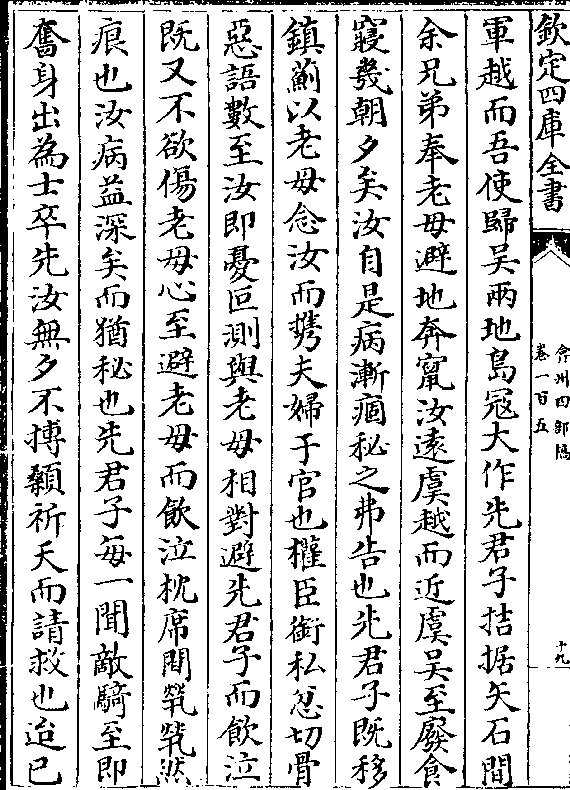 欽定四庫全書
弇州四部稿
卷一百五
十九
軍越而吾使歸吳兩地島冦大作先君子拮据矢石間
余兄弟奉老毋避地奔竄汝遠虞越而近虞吳至廢食
寢㡬朝夕矣汝自是病漸痼秘之弗告也先君子既移
鎮薊以老毋念汝而携夫婦子官也權臣銜私忿切骨
惡語數至汝即憂叵測與老毋相對避先君子而飲泣
既又不欲傷老毋心至避老毋而飲泣枕席間煢煢然
痕也汝病益深矣而猶秘也先君子每一聞敵騎至即
奮身出為士卒先汝無夕不搏顙祈天而請救也迨已